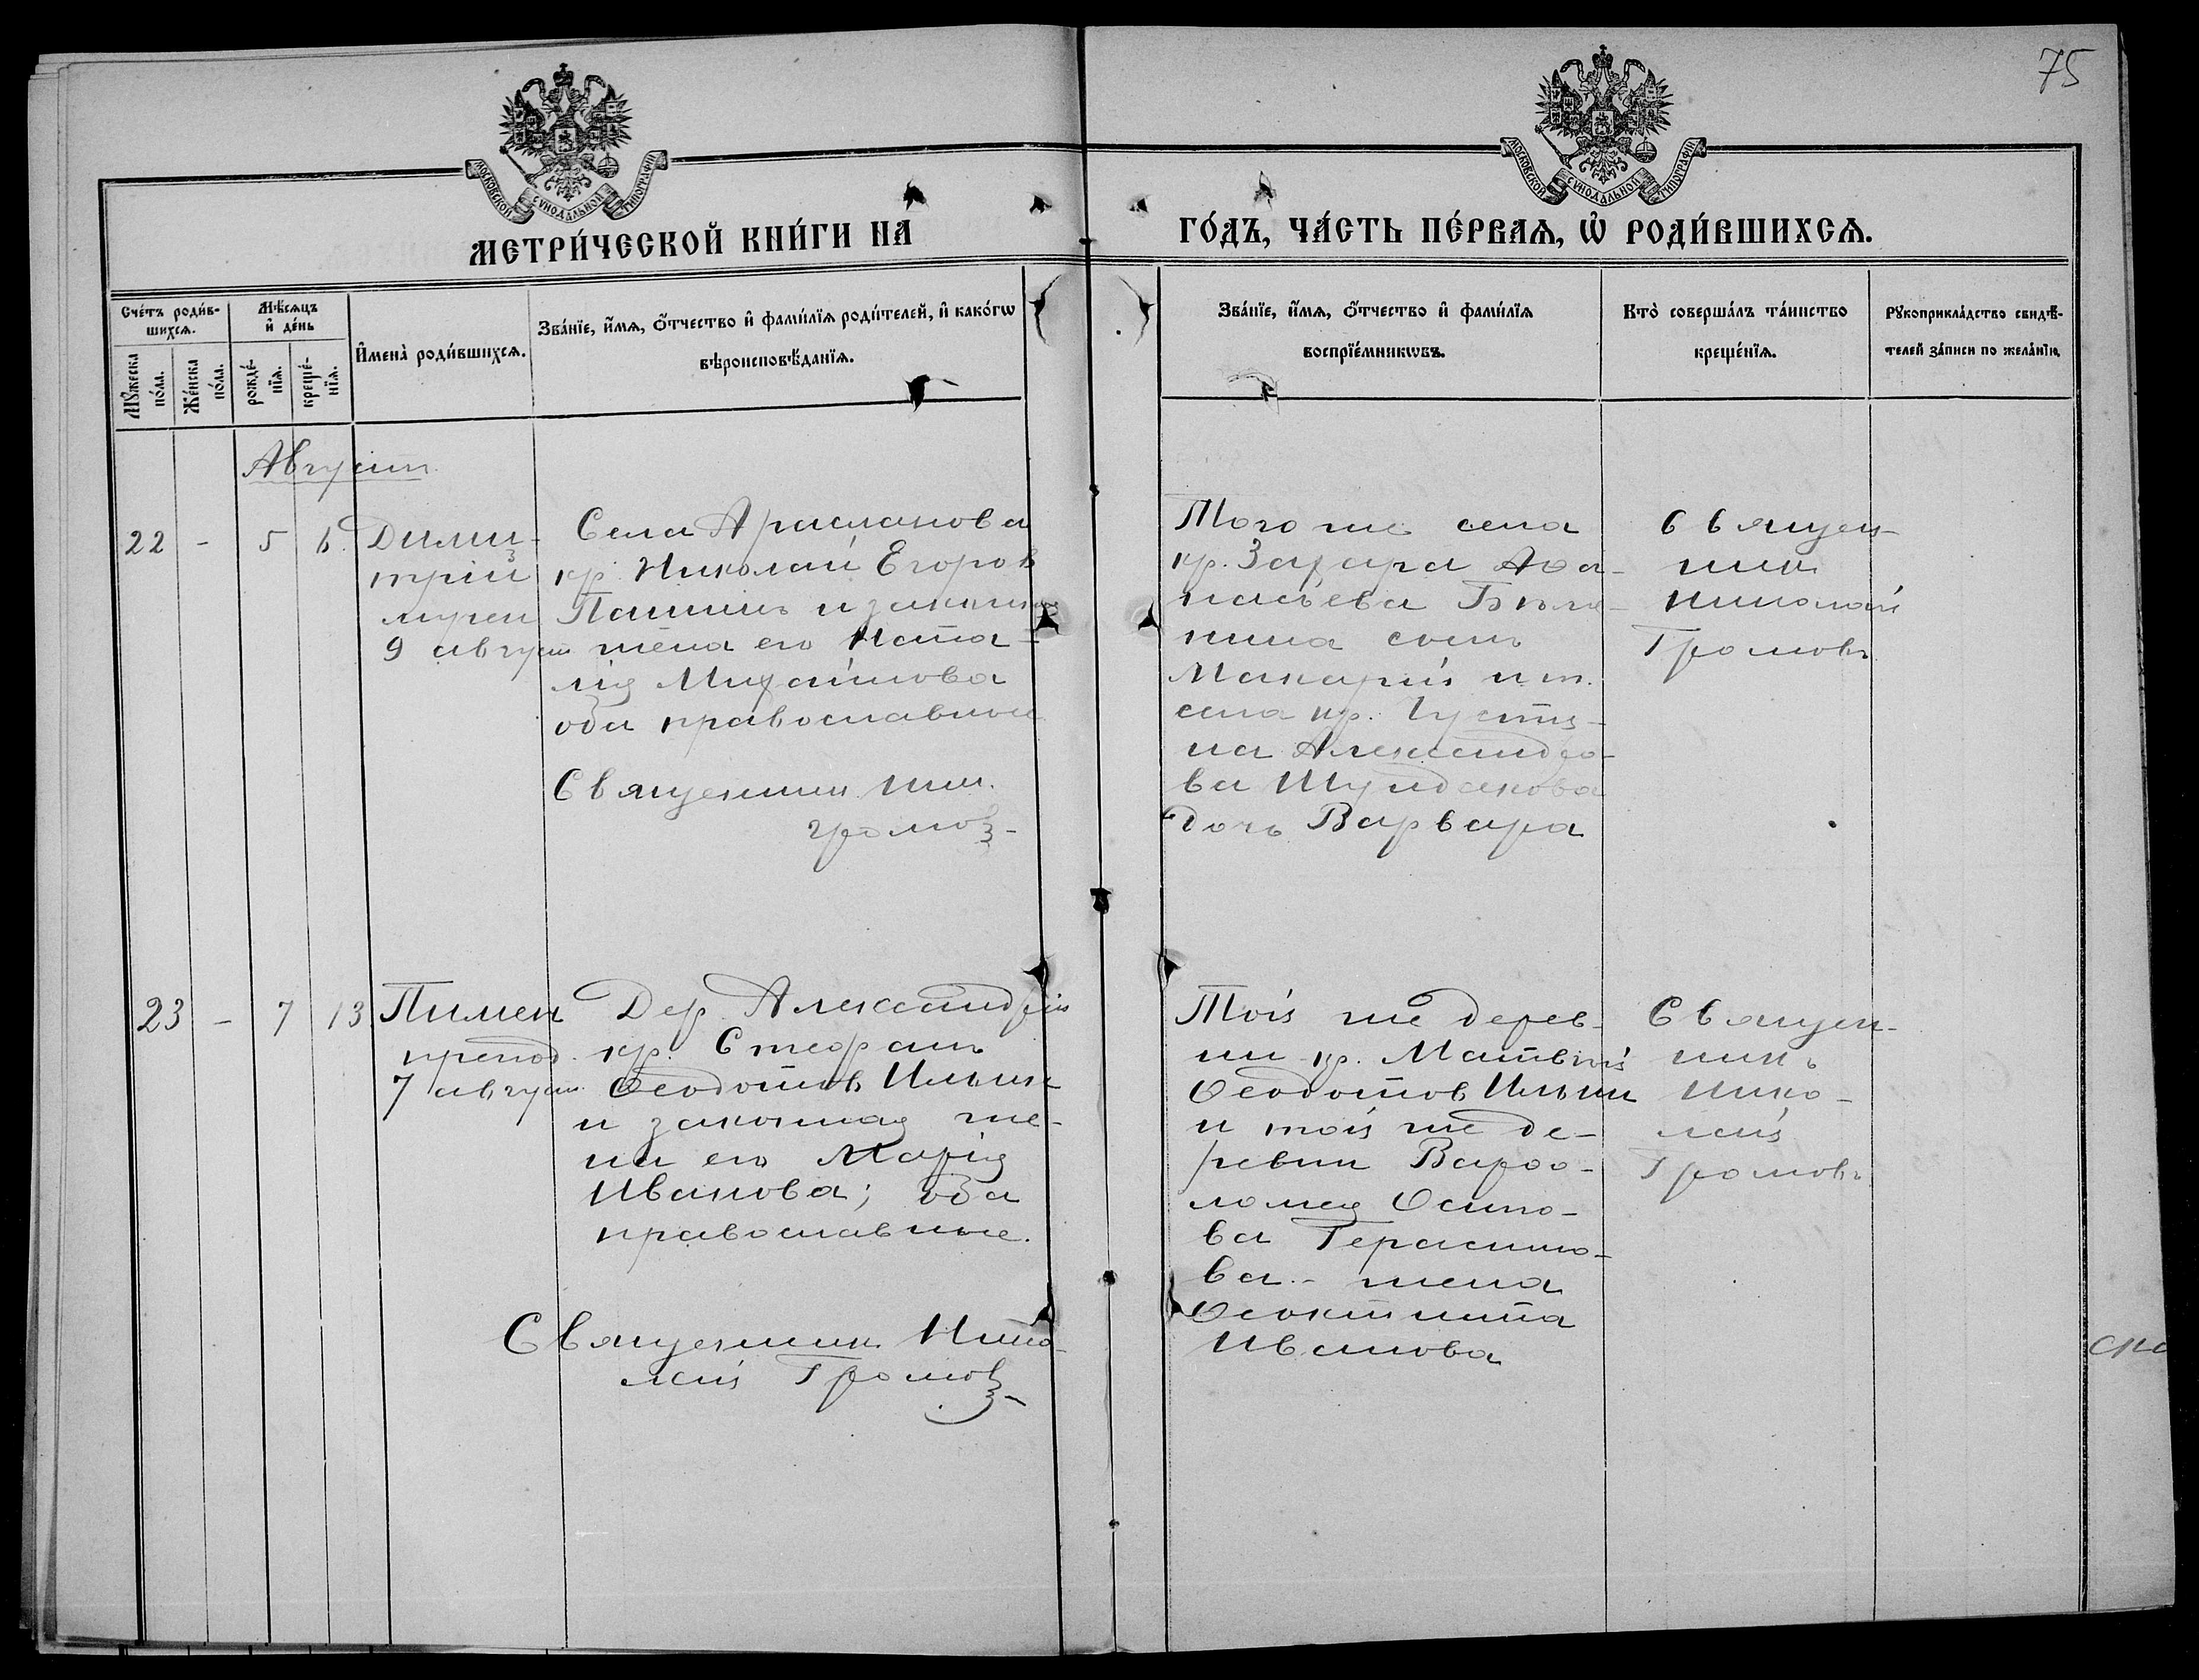 75
МОСКОВСКОЙ СѴНОДАЛЬНОЙ ТИПОГРАФІИ
МОСКОВСКОЙ СѴНОДАЛЬНОЙ ТИПОГРАФІИ
МЕТРИ́ЧЕСКОЙ КНИ́ГИ НА
ГО́ДЪ, ЧА́СТЬ ПЕ́РВАѦ, Ѡ҆ РОДИ́ВШИХСѦ.
Сче́тъ роди́в-
шихсѧ.
Мꙋ́жеска
по́ла.
Же́нска
по́ла.
Мѣ́сѧцъ
и҆ де́нь
рожде́-
нїѧ.
креще́-
нїѧ.
И҆мена̀ роди́вшихсѧ.
Зва́нїе, и҆́мѧ, ѻ҆́тчество и҆ фами́лїѧ роди́телей, и҆ како́гѡ
вѣроисповѣ́данїѧ.
Зва́нїе, и҆́мѧ, ѻ҆́тчество и҆ фами́лїѧ
воспрїе́мникѡвъ.
Кто̀ соверша́лъ та́инство
креще́нїѧ.
Рꙋкоприкла́дство свидѣ́-
телей за́писи по жела́нїю.
Августъ
22 - 5 6.
Дими-
трій
мучен
9 август
Села Арасланова
кр. Николай Егоров
Пашинъ и законная
жена его Ната-
лія Михайлова
оба православные
Священник Ник.
Громовъ
Того же села
кр. Захара Аѳа-
насьева Бѣля-
нина сынъ
Макарій и т.
села кр. Іусти-
на Александро-
ва Шулдакова
дочь Варвара
Священ-
ник
Николай
Громовъ
23 - 7 13
Пимен
препод.
7 август
Дер. Александріи
кр. Стефанъ
Ѳеодотов Ильин
и законная же-
на его Марія
Иванова; оба
православные.
Священник Нико-
лай Громовъ
Той же дерев-
ни кр. Матвѣй
Ѳеодотов Ильин
и той же де-
ревни Варѳо-
ломея Осипо-
ва Герасимо-
ва - жена
Ѳеоктиста
Иванова
Священ-
никъ
Нико-
лай
Громовъ